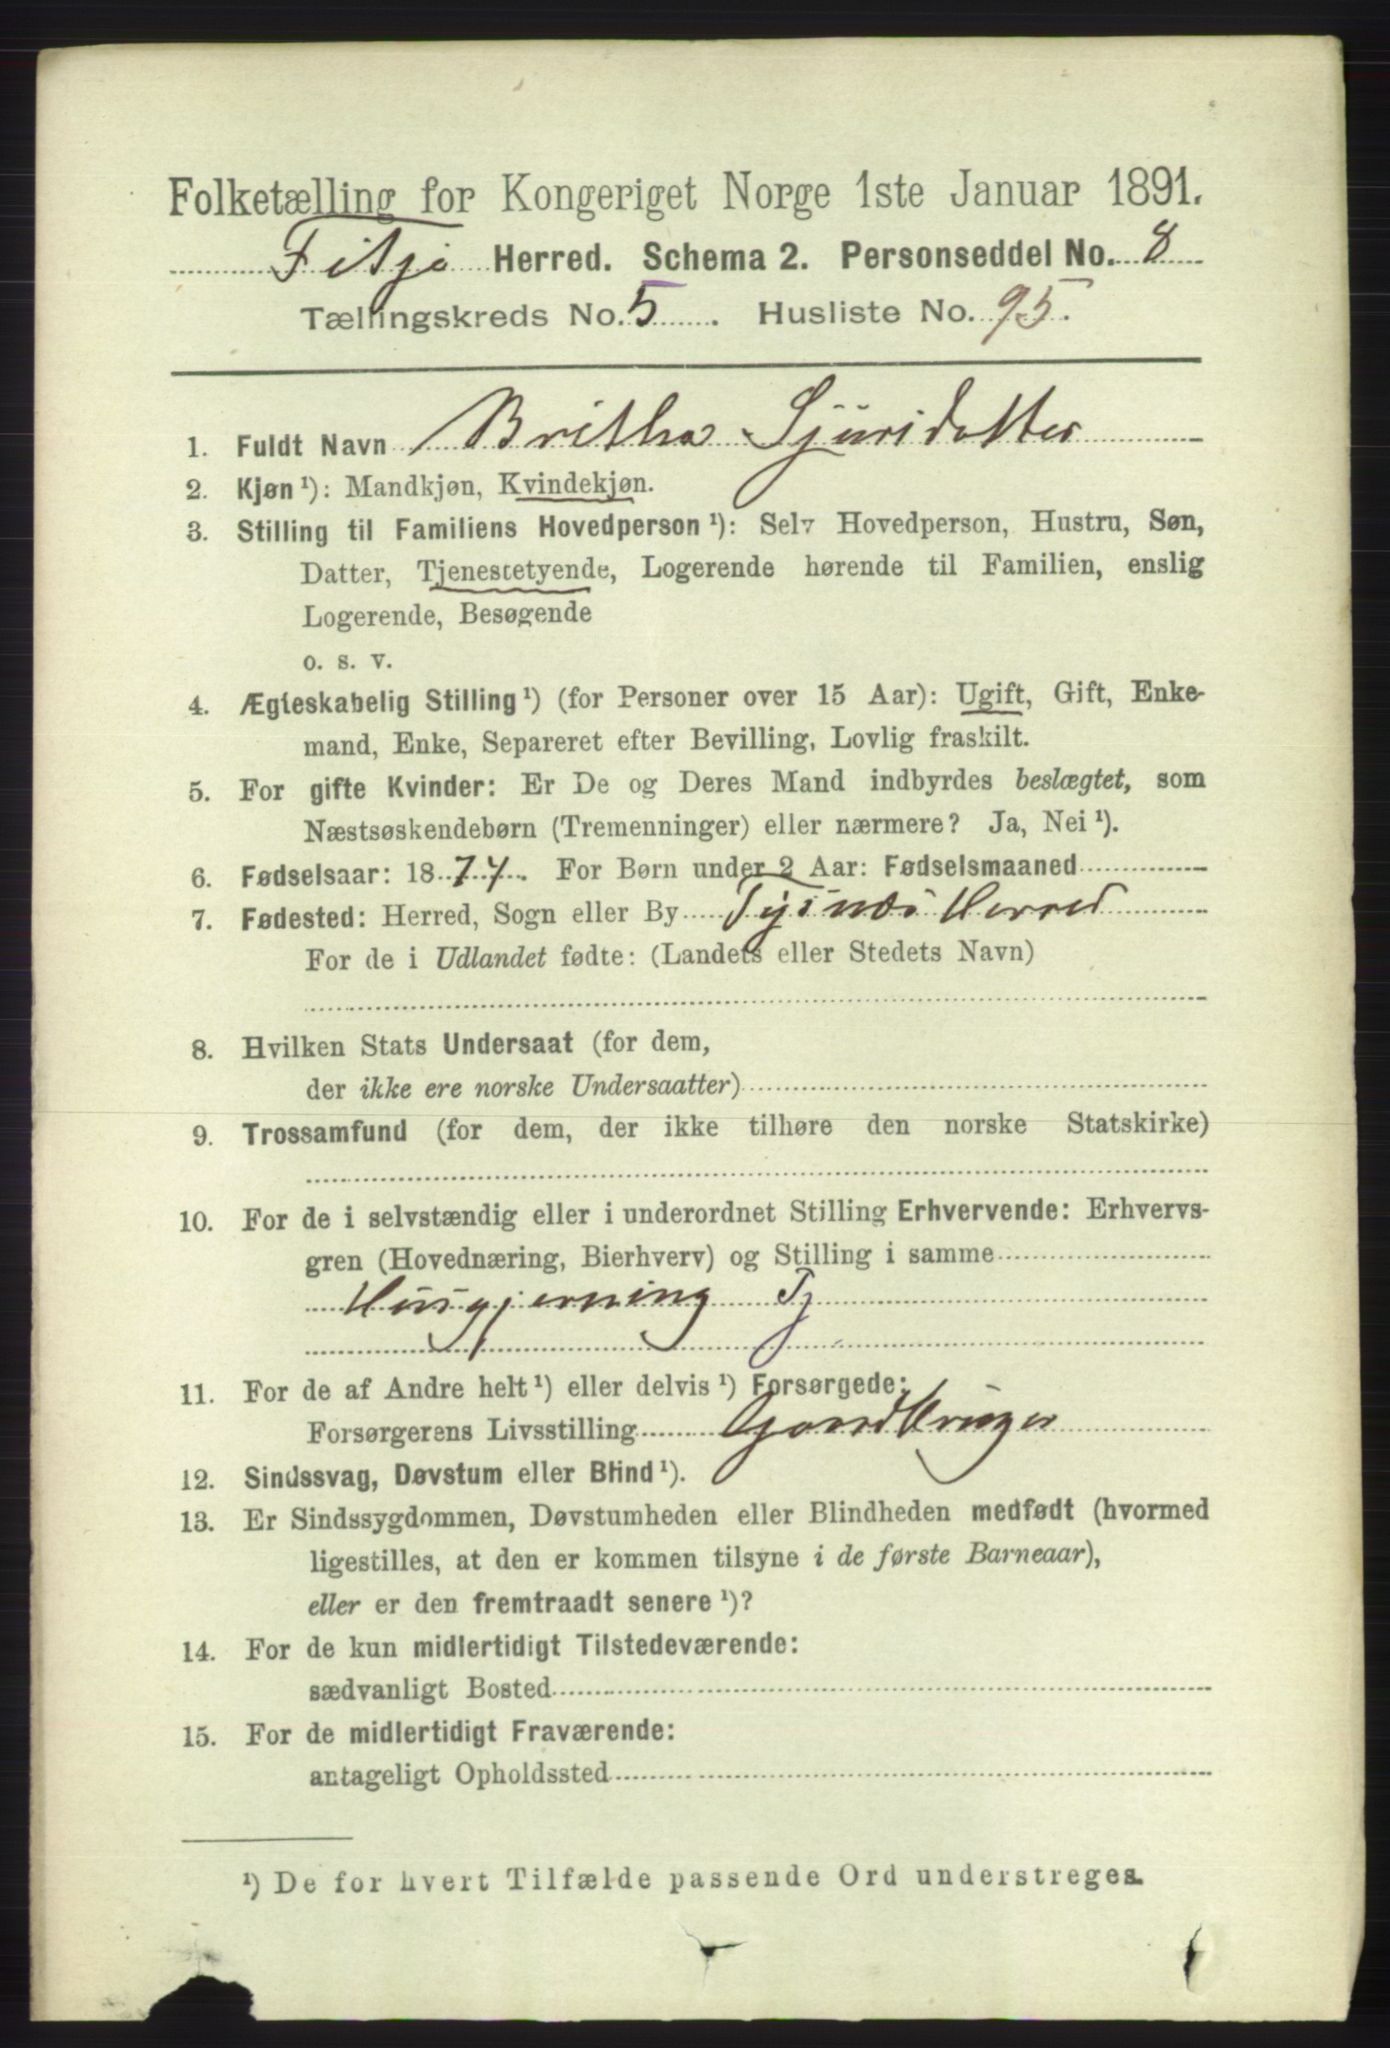 Folketælling for Kongeriget Norge 1ste Januar 1891.
Fitje Herred. Schema 2. Personseddel No. 8
Tællingskreds No. 5. Husliste No. 95.
1. Fuldt Navn Britha Sjursdatter
2. Kjøn ¹): Mandkjøn, Kvindekjøn.
3. Stilling til Familiens Hovedperson ¹): Selv Hovedperson, Hustru, Søn,
Datter, Tjenestetyende, Logerende hørende til Familien, enslig
Logerende, Besøgende
o. s. v.
4. Ægteskabelig Stilling ¹) (for Personer over 15 Aar): Ugift, Gift, Enke-
mand, Enke, Separeret efter Bevilling, Lovlig fraskilt.
5. For gifte Kvinder: Er De og Deres Mand indbyrdes beslægtet, som
Næstsøskendebørn (Tremenninger) eller nærmere? Ja, Nei ¹).
6. Fødselsaar: 1874. For Børn under 2 Aar: Fødselsmaaned
7. Fødested: Herred, Sogn eller By Tysnæs Herred
For de i Udlandet fødte: (Landets eller Stedets Navn)
8. Hvilken Stats Undersaat (for dem,
der ikke ere norske Undersaatter)
9. Trossamfund (for dem, der ikke tilhøre den norske Statskirke)
10. For de i selvstændig eller i underordnet Stilling Erhvervende: Erhvervs-
gren (Hovednæring, Bierhverv) og Stilling i samme
Husgjerning Tj
11. For de af Andre helt ¹) eller delvis ¹) Forsørgede:
Forsørgerens Livsstilling Gaardbruger
12. Sindssvag, Døvstum eller Blind ¹).
13. Er Sindssygdommen, Døvstumheden eller Blindheden medfødt (hvormed
ligestilles, at den er kommen tilsyne i de første Barneaar),
eller er den fremtraadt senere ¹)?
14. For de kun midlertidigt Tilstedeværende:
sædvanligt Bosted
15. For de midlertidigt Fraværende:
antageligt Opholdssted
¹) De for hvert Tilfælde passende Ord understreges.